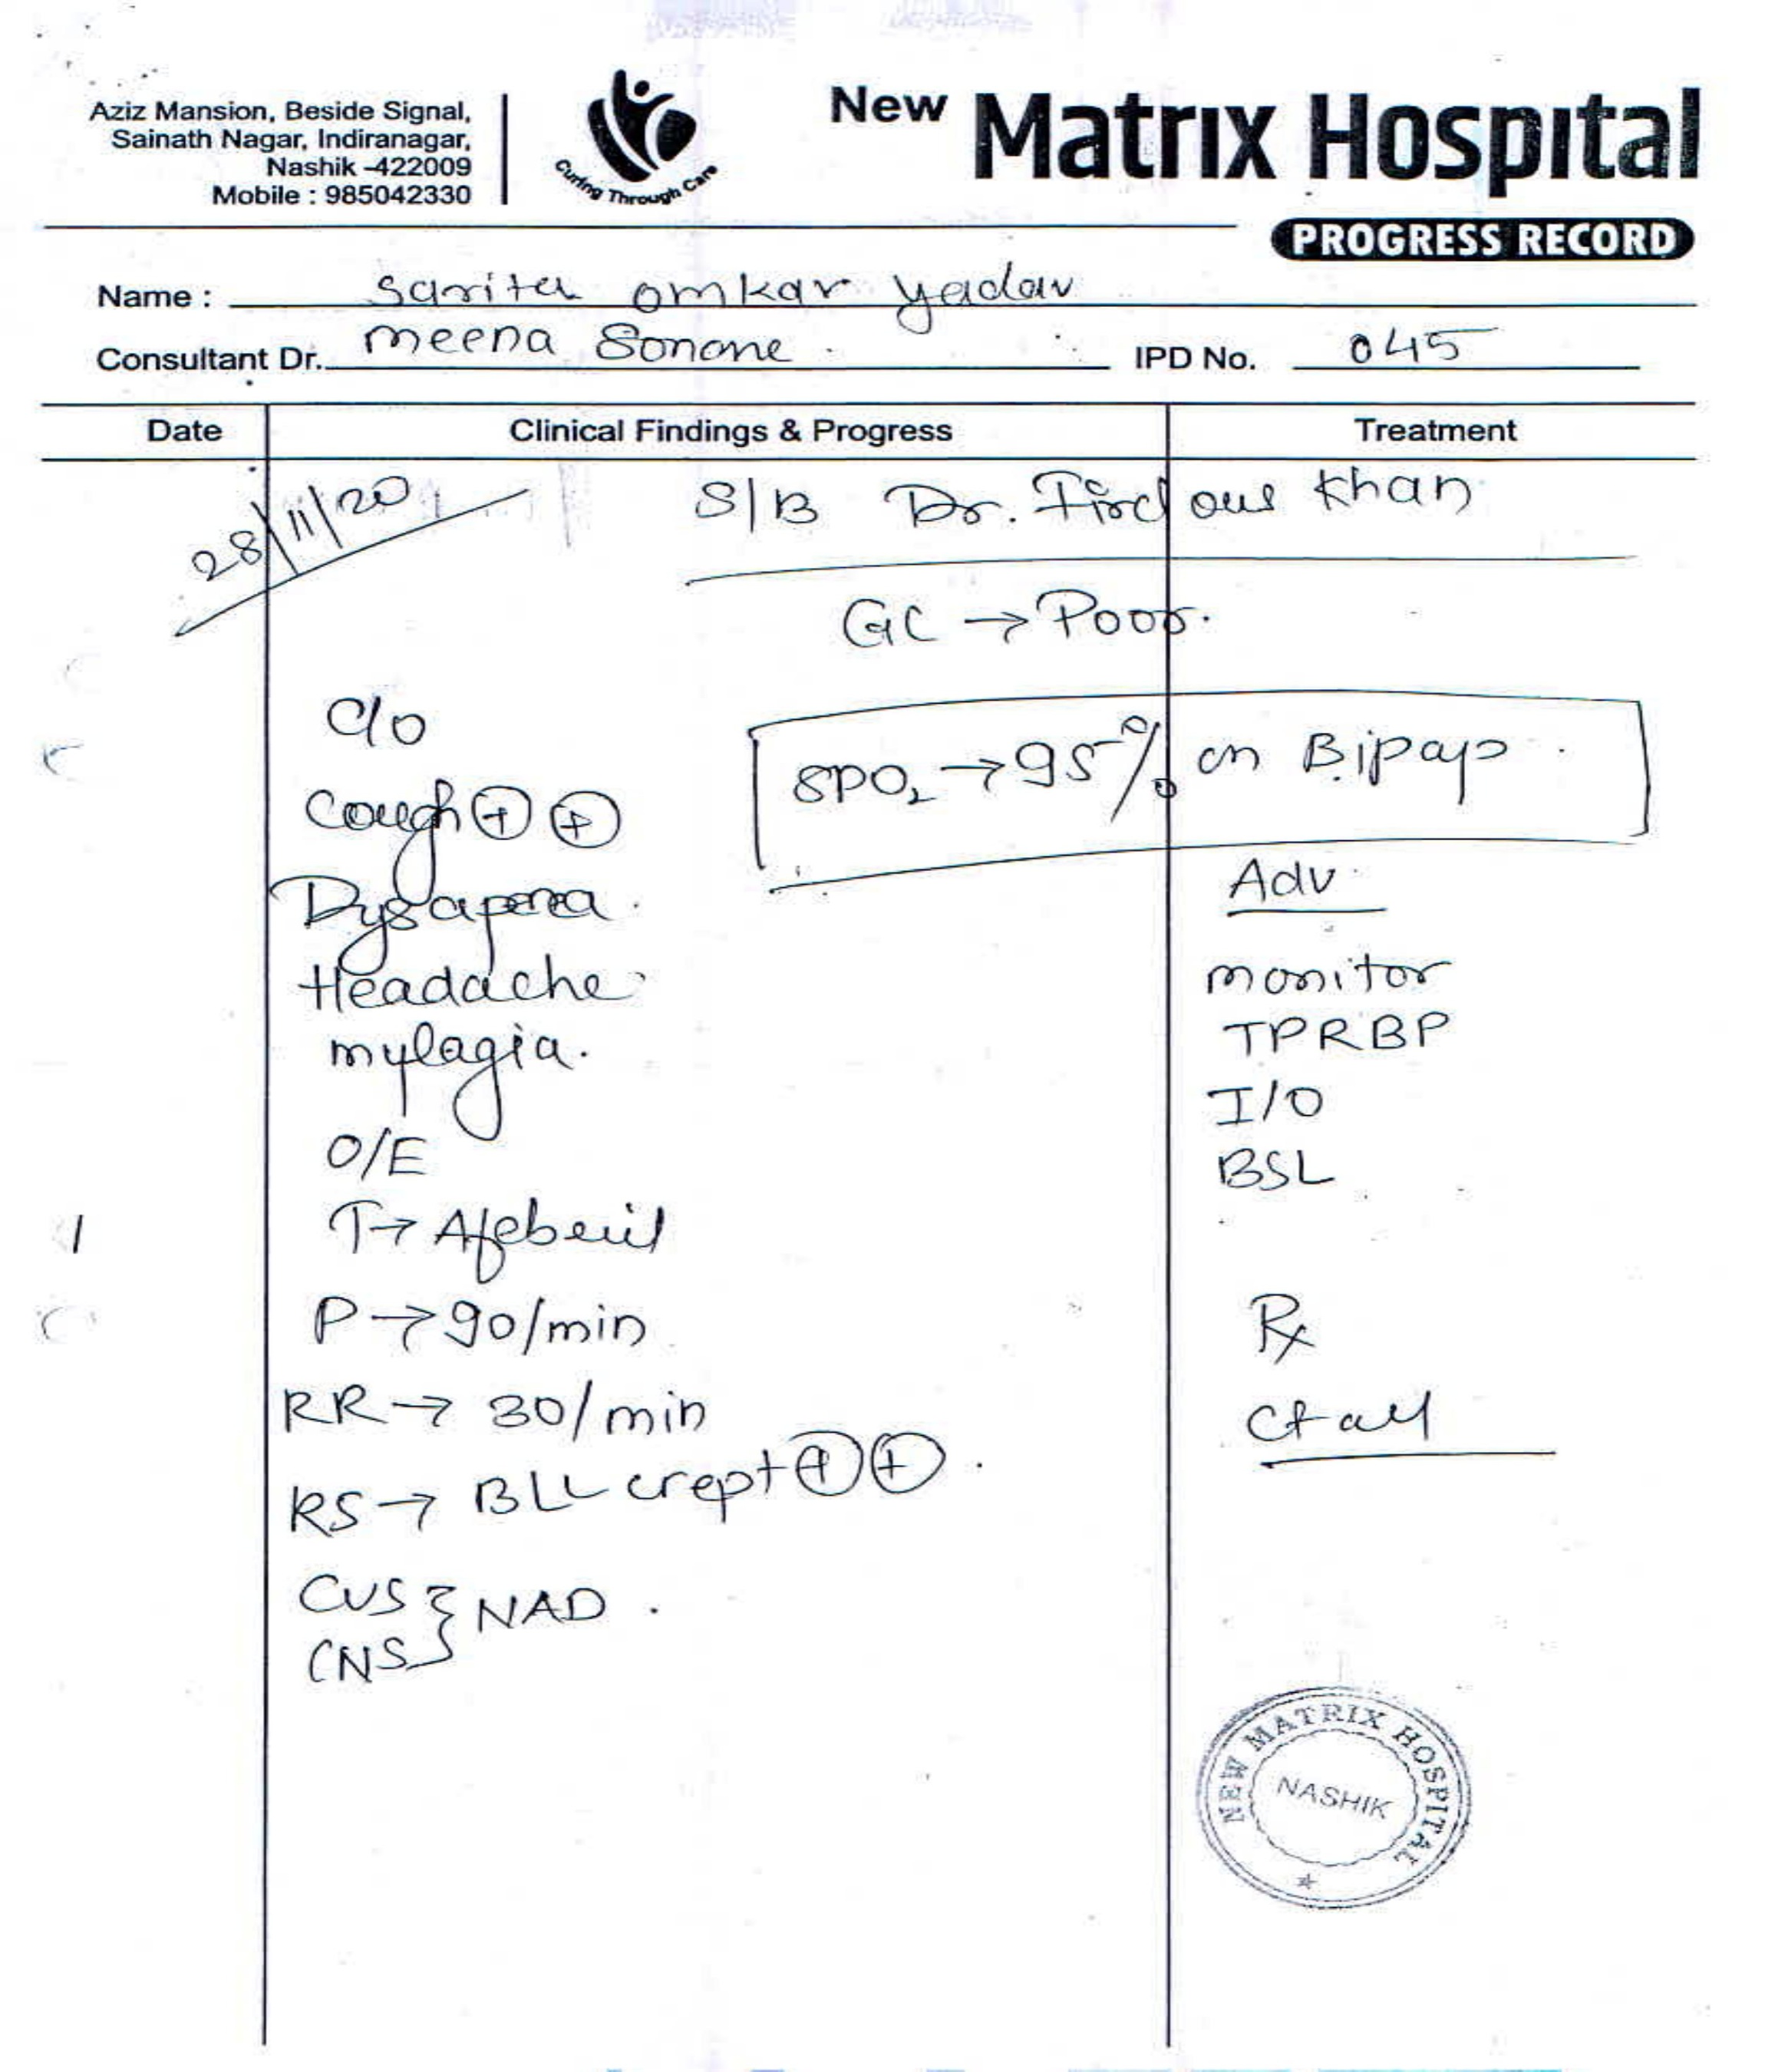 Aziz Mansion, Beside Signal,
Sainath Nagar, Indiranagar,
Nashik -422009
Mobile : 985042330
Curing Through Care
New Matrix Hospital
PROGRESS RECORD
Name : Sarita omkar yadav
Consultant Dr. meena Sonone . IPD No. 045
Date Clinical Findings & Progress Treatment
28/11/20 S/B Dr. Firdous Khan
GC → Poor.
C/o
SPO₂ → 95% on Bipap
Cough ⊕ ⊕
Adv
Dysapena.
Headache
monitor
mylagia.
TPRBP
I/O
O/E
BSL
T→ Afeberil
P→ 90/min
Rx
RR → 30/min
Ct all
RS → BLL crept ⊕⊕.
CVS } NAD .
CNS
NEW MATRIX HOSPITAL
NASHIK